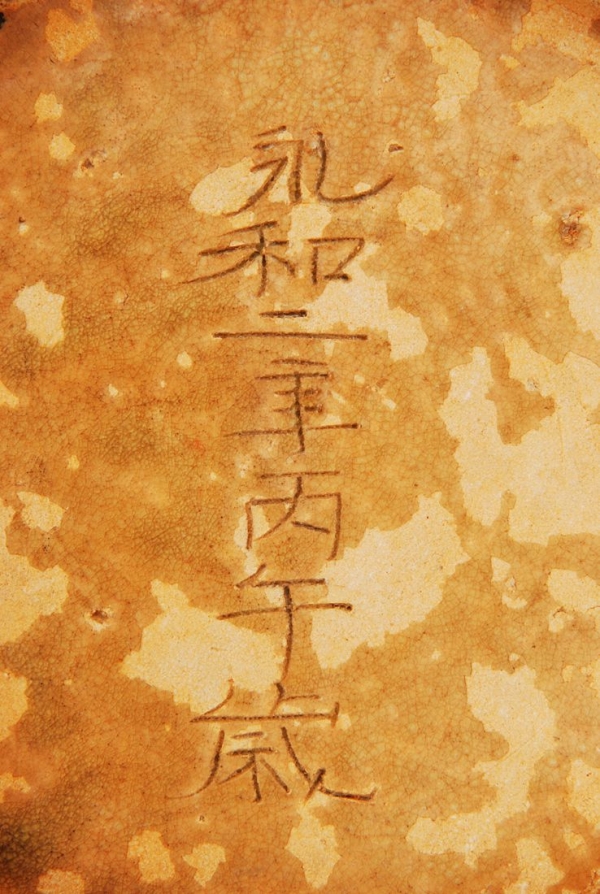 永和二年丙午歲